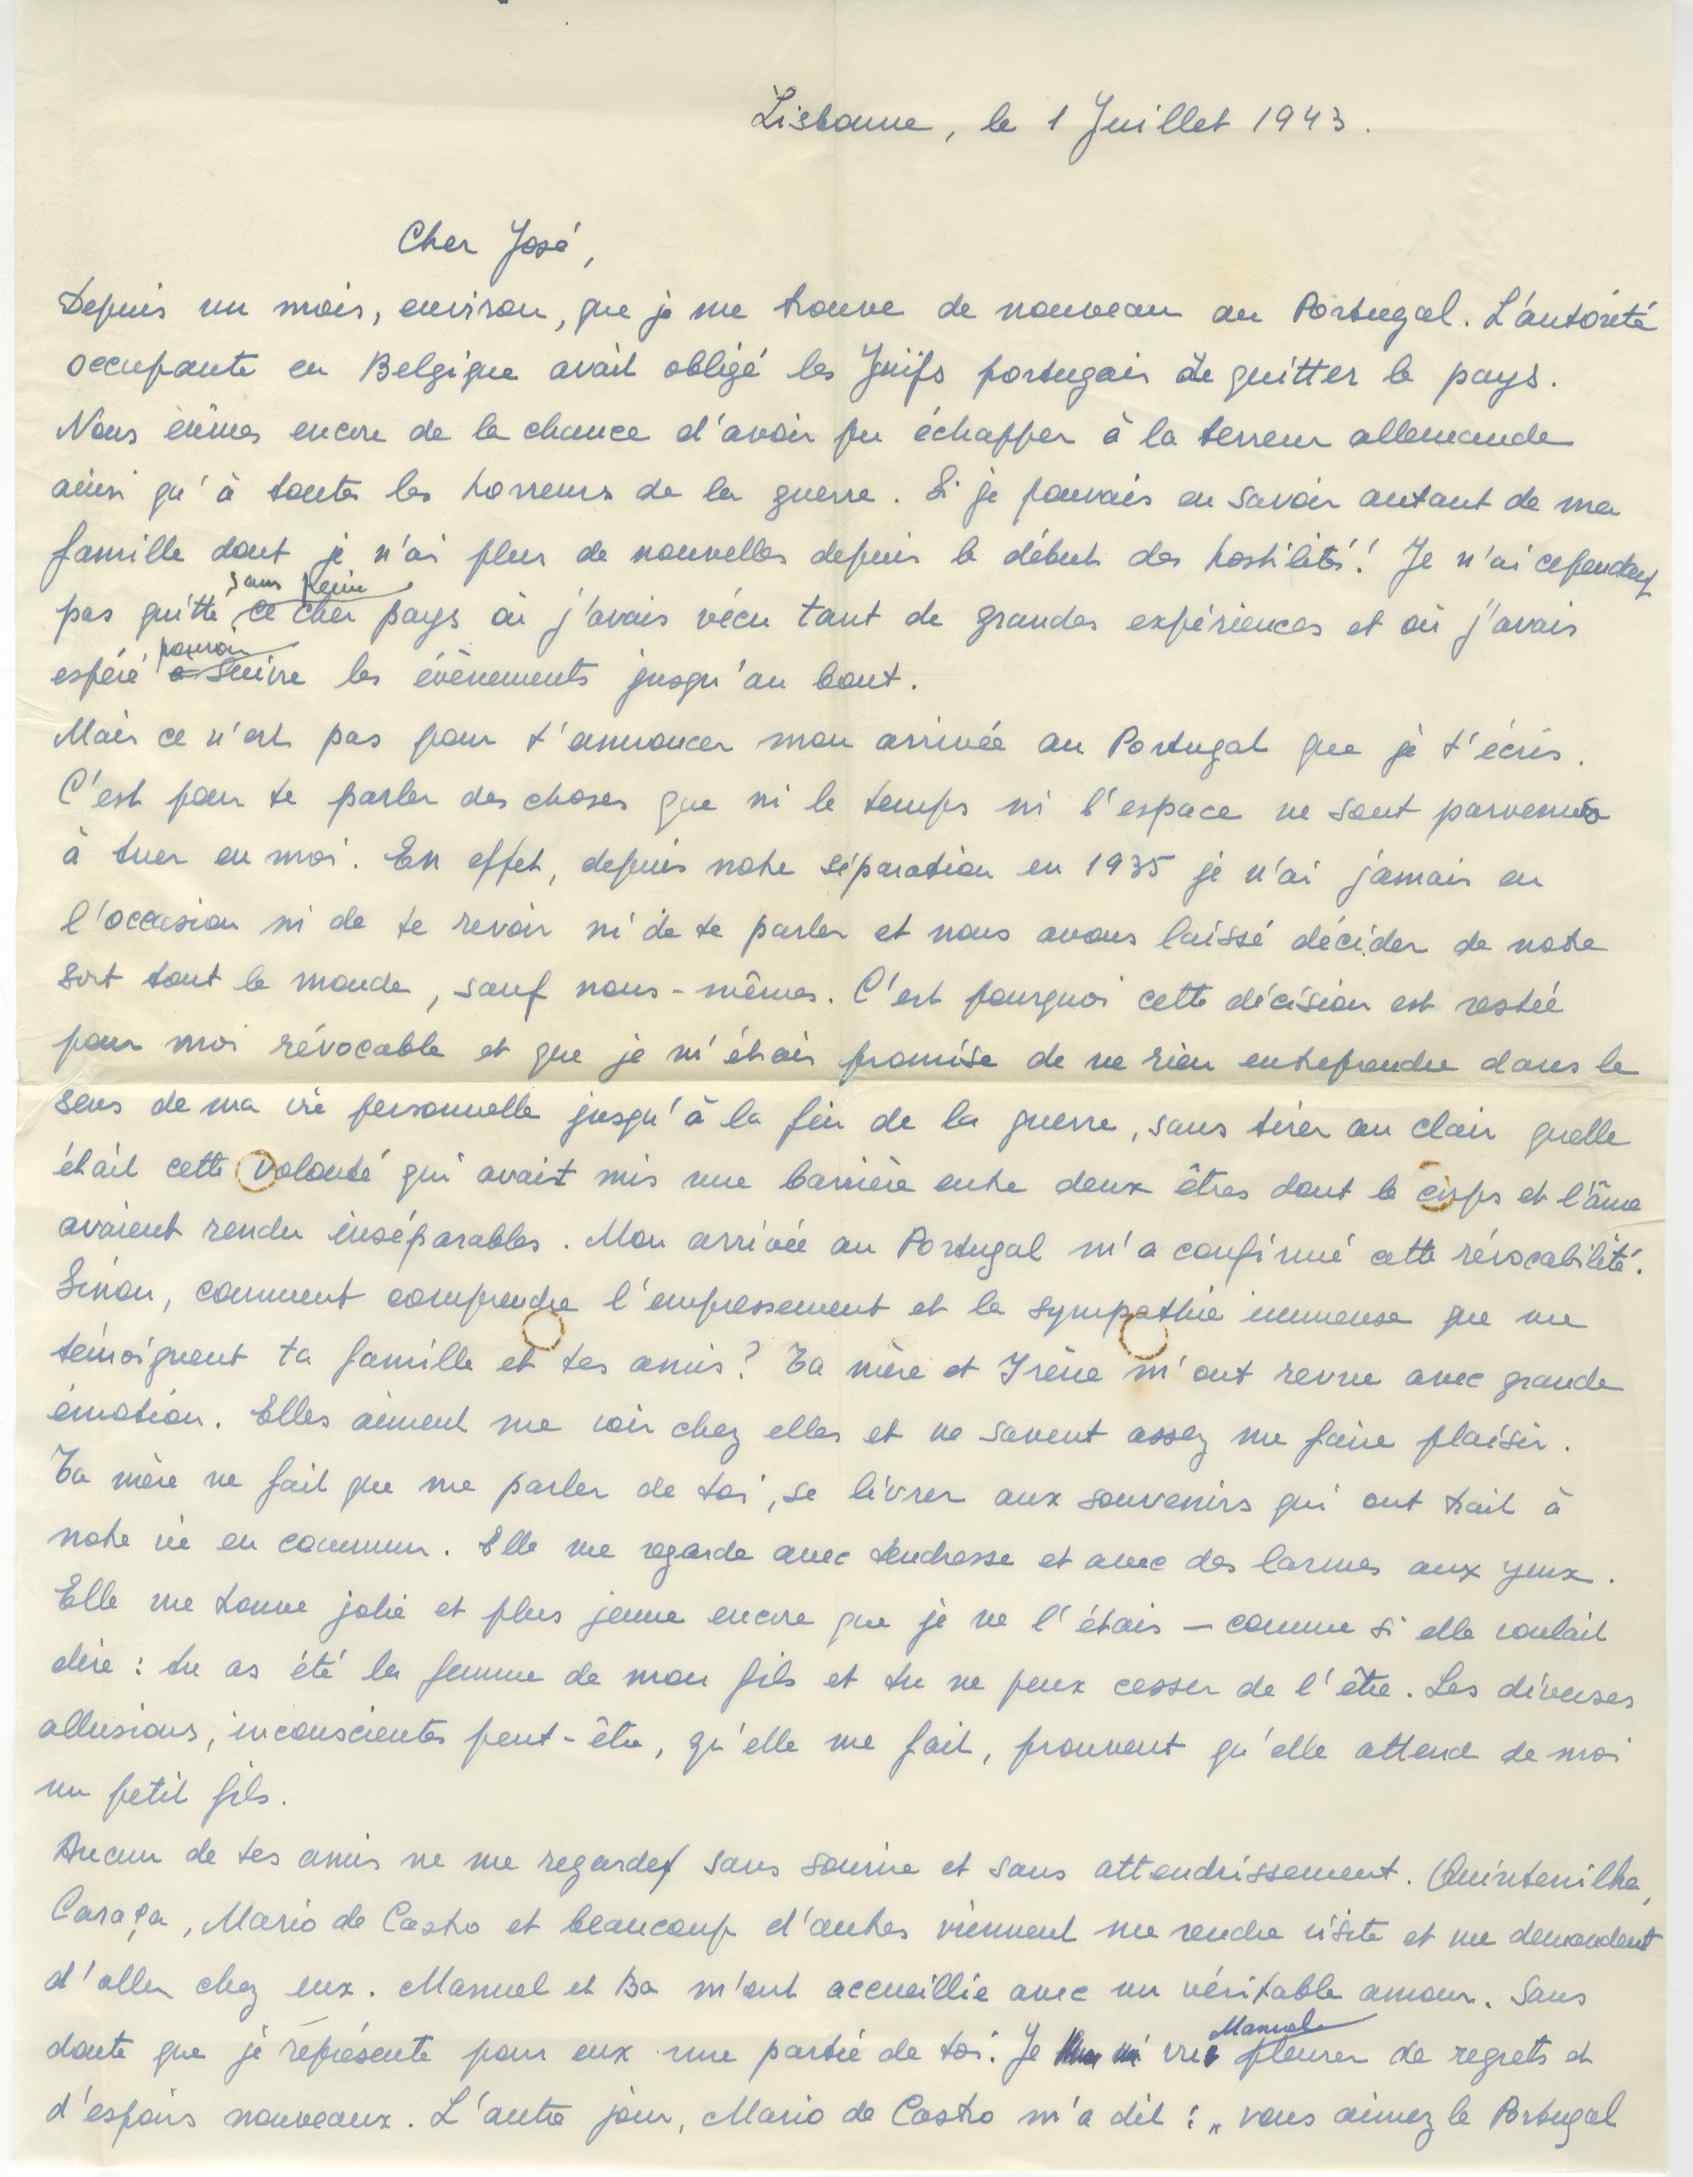 Lisbonne, le 1 Juillet 1943.
Cher José,
Depuis un mois, environ, que je me trouve de nouveau au Portugal. L'autorité
occupante en Belgique avait obligé les Juifs portugais de quitter le pays.
Nous eûmes encore de la chance d'avoir pu échapper à la terreur allemande
ainsi qu'à toutes les horreurs de la guerre. Si je pouvais en savoir autant de ma
famille dont je n'ai plus de nouvelles depuis le début des hostilités! Je n'ai cependant
pas quitté sans peine ce cher pays où j'avais vécu tant de grandes expériences et où j'avais
espéré pouvoir suivre les évènements jusqu'au bout.
Mais ce n'est pas pour t'annoncer mon arrivée au Portugal que je t'écris.
C'est pour te parler des choses que ni le temps ni l'espace ne sont parvenus
à tuer en moi. En effet, depuis notre séparation en 1935 je n'ai jamais eu
l'occasion ni de te revoir ni de te parler et nous avons laissé décider de notre
sort tout le monde, sauf nous-mêmes. C'est pourquoi cette décision est restée
pour moi révocable et que je m'étais promise de ne rien entreprendre dans le
sens de ma vie personnelle jusqu'à la fin de la guerre, sans tirer au clair quelle
était cette volonté qui avait mis une barrière entre deux êtres dont le corps et l'âme
avaient rendu inséparables. Mon arrivée au Portugal m'a confirmé cette révocabilité.
Sinon, comment comprendre l'empressement et la sympathie immense que me
témoignent ta famille et tes amis? Ta mère et Irène m'ont revue avec grande
émotion. Elles aiment me voir chez elles et ne savent assez me faire plaisir.
Ta mère ne fait que me parler de toi, se livrer aux souvenirs qui ont trait à
notre vie en commun. Elle me regarde avec tendresse et avec des larmes aux yeux.
Elle me trouve jolie et plus jeune encore que je ne l'étais - comme si elle voulait
dire: tu as été la femme de mon fils et tu ne peux cesser de l'être. Les diverses
allusions, inconscientes peut-être, qu'elle me fait, prouvent qu'elle attend de moi
un petit fils.
Aucun de tes amis ne me regarde sans sourire et sans attendrissement. Quintanilha,
Caraça, Mario de Castro et beaucoup d'autres viennent me rendre visite et me demandent
d'aller chez eux. Manuel et Ba m'ont accueillie avec un véritable amour. Sans
doute que je représente pour eux une partie de toi. Je vis Manuel pleurer de regrets et
d'espoirs nouveaux. L'autre jour, Mario de Castro m'a dit: „ vous aimez le Portugal